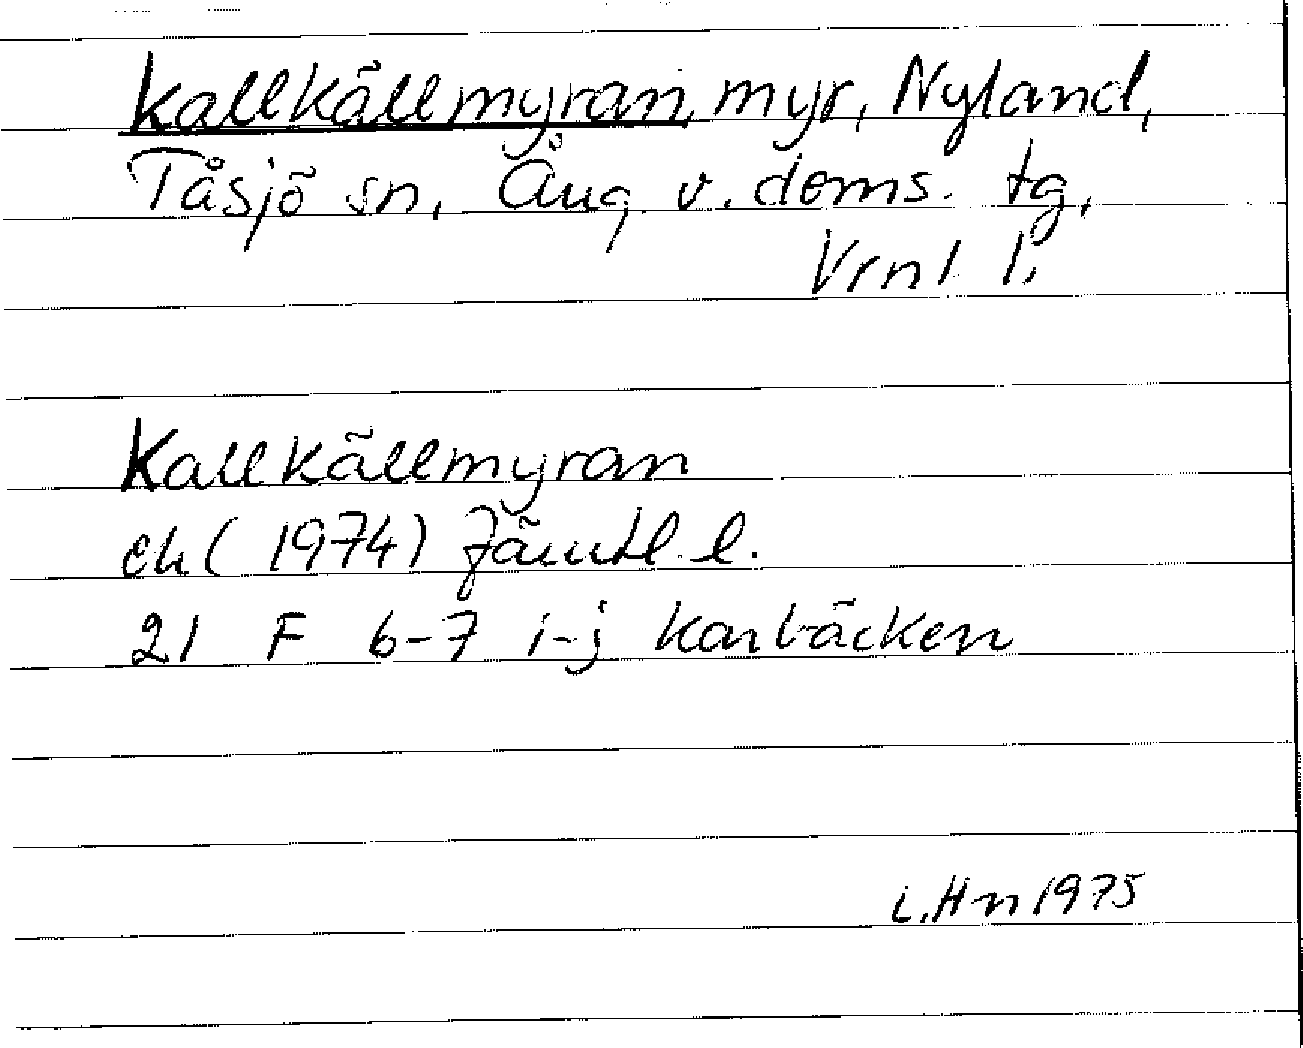 Kallkällmyran, myr, Nyland,
Tåsjö sn, Ång. v. doms. tg,
Vrnl l.
Kallkällmyran
ek (1974) Jämtl. l.
21 F 6-7 i-j Karbäcken
L.Hn 1975